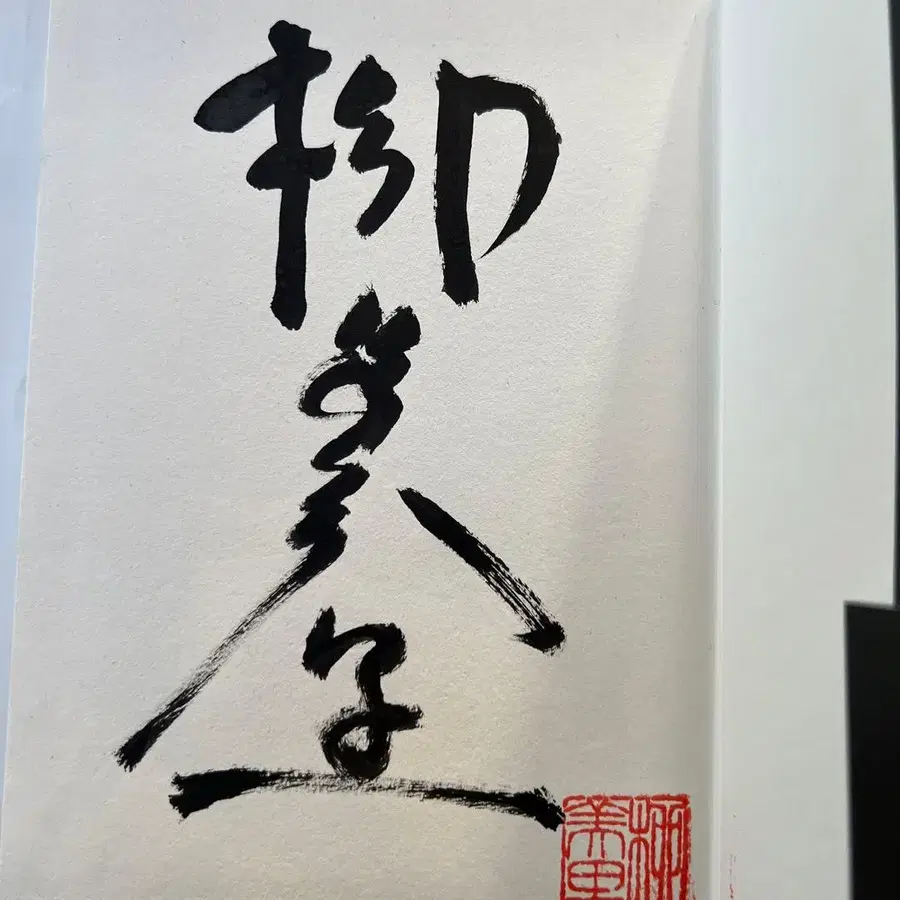 柳美里
柳
美里